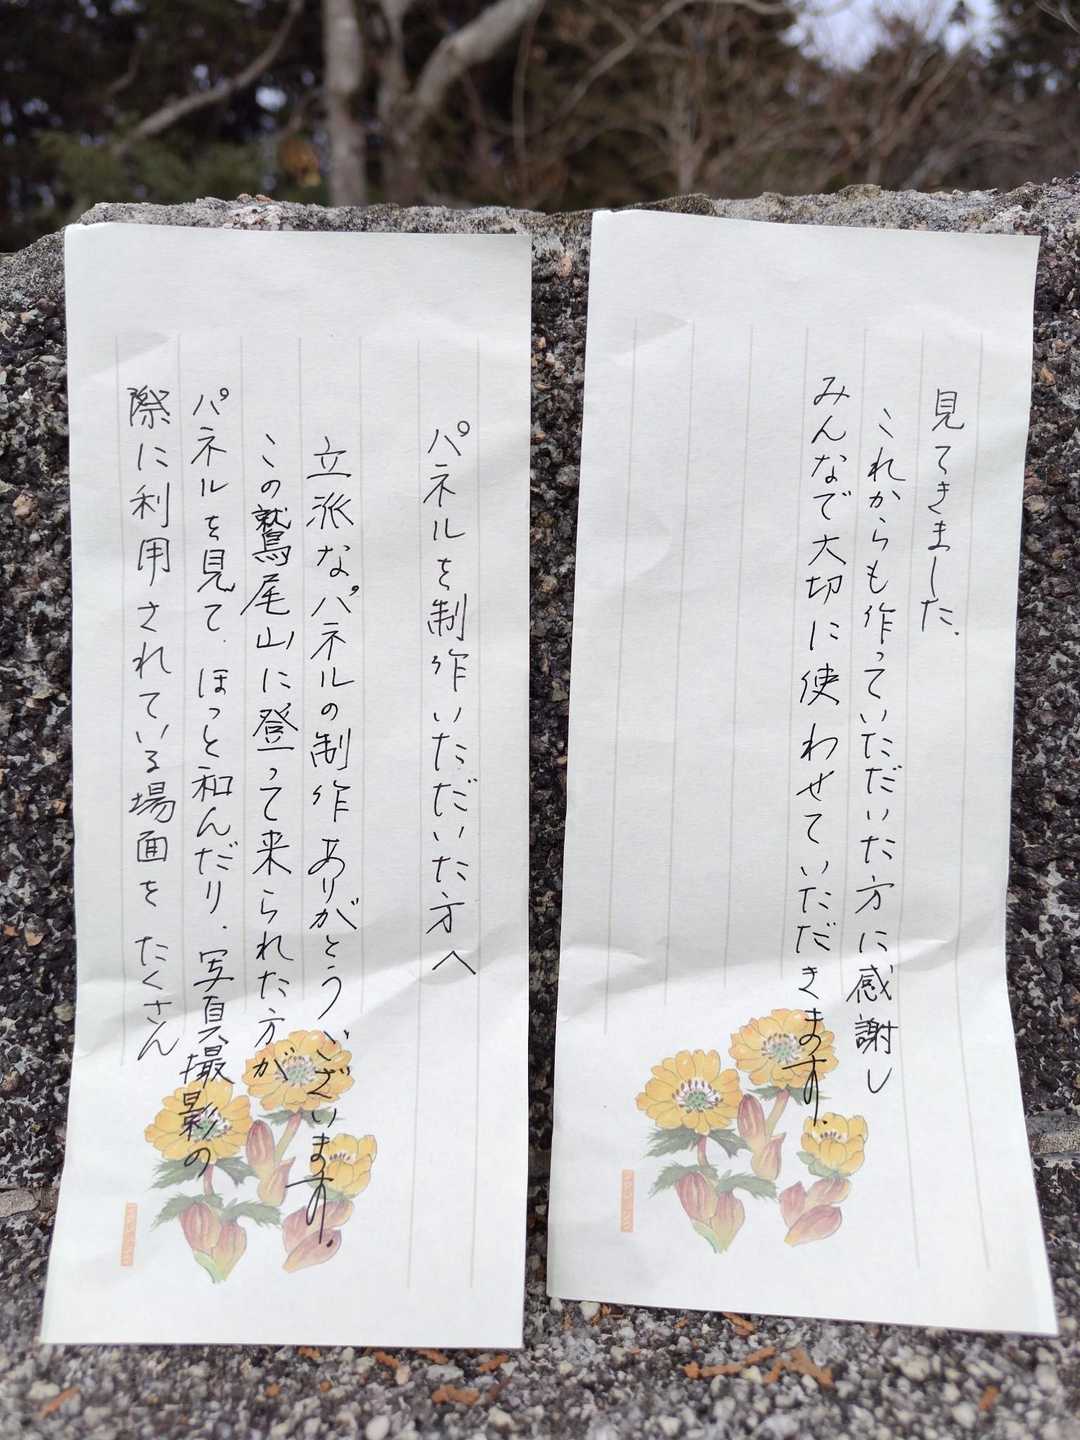 パネルを制作いただいた方へ
立派なパネルの制作ありがとうございます。
この鷲尾山に登って来られた方が
パネルを見て、ほっと和んだり、写真撮影の
際に利用されている場面をたくさん
見てきました。
これからも作っていただいた方に感謝し
みんなで大切に使わせていただきます。